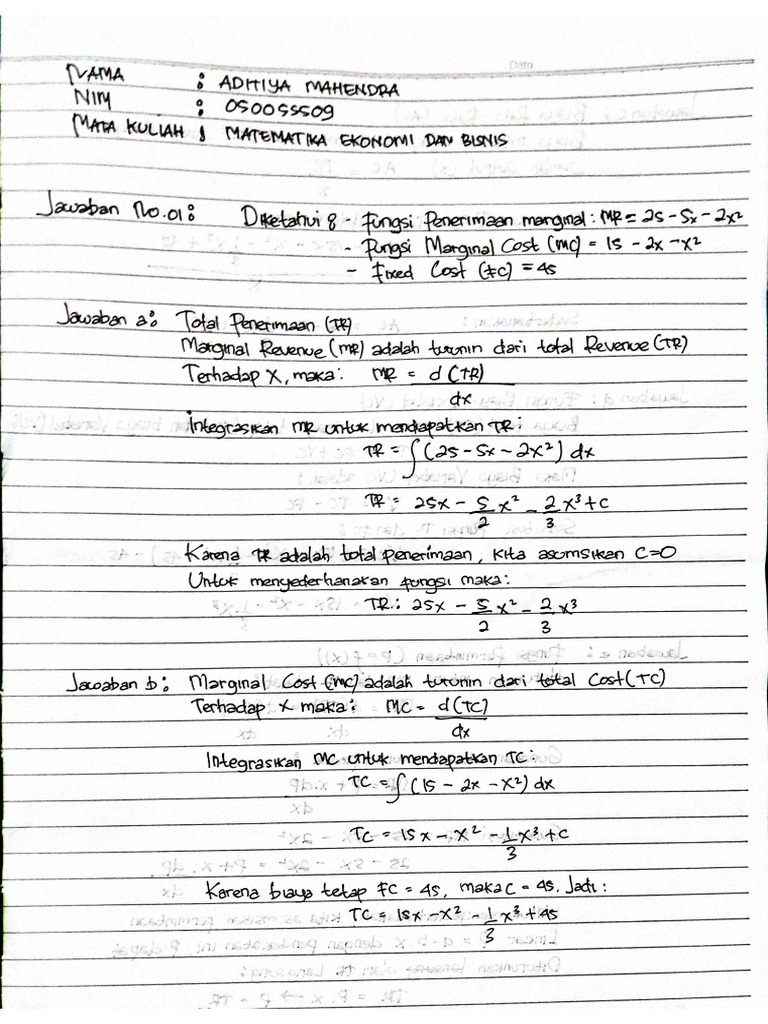 Date
NAMA : ADITIYA MAHENDRA
NIM : 050055509
MATA KULIAH : MATEMATIKA EKONOMI DAN BISNIS
Jawaban No.01: Diketahui : - Fungsi Penerimaan marginal: MR = 25 - 5x - 2x²
- Fungsi Marginal Cost (MC) = 15 - 2x - x²
- Fixed Cost (FC) = 45
Jawaban a: Total Penerimaan (TR)
Marginal Revenue (MR) adalah turunin dari total Revenue (TR)
Terhadap X, maka: MR = d(TR)/dx
Integrasikan MR untuk mendapatkan TR:
TR = ∫(25 - 5x - 2x²) dx
TR = 25x - 5/2 x² - 2/3 x³ + C
Karena TR adalah total penerimaan, kita asumsikan C=0
Untuk menyederhanakan fungsi maka:
TR: 25x - 5/2 x² - 2/3 x³
Jawaban b: Marginal Cost (MC) adalah turunin dari total Cost (TC)
Terhadap X maka: MC = d(TC)/dx
Integrasikan MC untuk mendapatkan TC:
TC = ∫(15 - 2x - x²) dx
TC = 15x - x² - 1/3 x³ + C
Karena biaya tetap FC = 45, maka C = 45. Jadi:
TC = 15x - x² - 1/3 x³ + 45